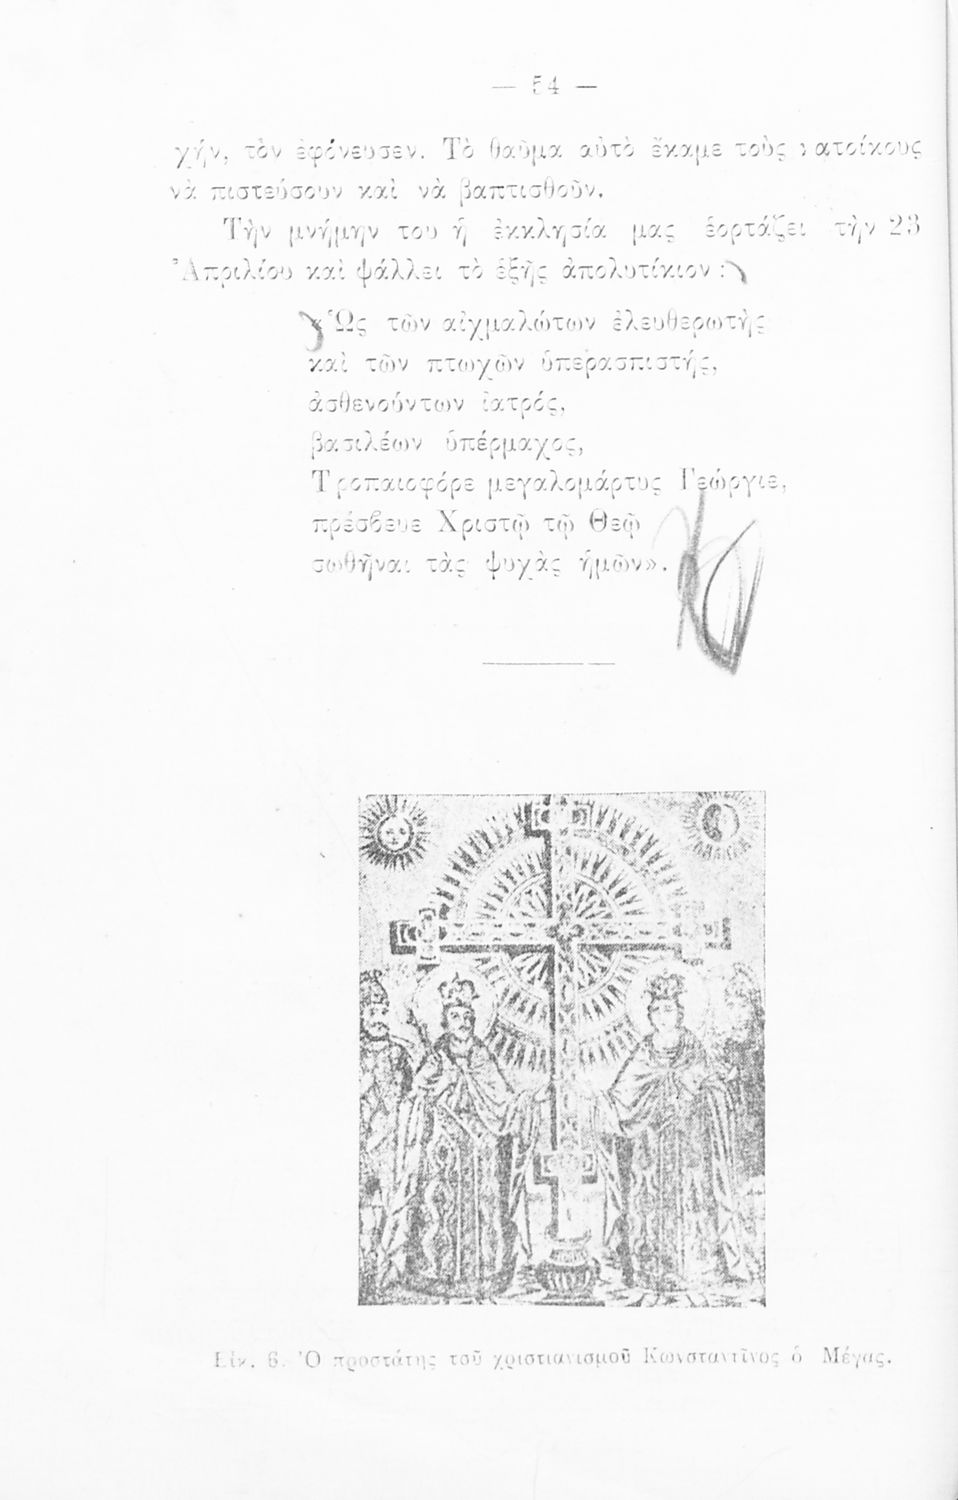 — 54 —
χήν, τὸν ἐφόνευσεν. Τὸ θαῦμα αὐτὸ ἔκαμε τοὺς κατοίκους
νὰ πιστεύσουν καὶ νὰ βαπτισθοῦν.
Τὴν μνήμην του ἡ ἐκκλησία μας ἑορτάζει τὴν 23
Ἀπριλίου καὶ ψάλλει τὸ ἑξῆς ἀπολυτίκιον :
Ὡς τῶν αἰχμαλώτων ἐλευθερωτὴς
καὶ τῶν πτωχῶν ὑπερασπιστής,
ἀσθενούντων ἰατρός,
βασιλέων ὑπέρμαχος,
Τροπαιοφόρε μεγαλομάρτυς Γεώργιε,
πρέσβευε Χριστῷ τῷ Θεῷ
σωθῆναι τὰς ψυχὰς ἡμῶν».
Εἰκ. 6. Ὁ προστάτης τοῦ χριστιανισμοῦ Κωνσταντῖνος ὁ Μέγας.